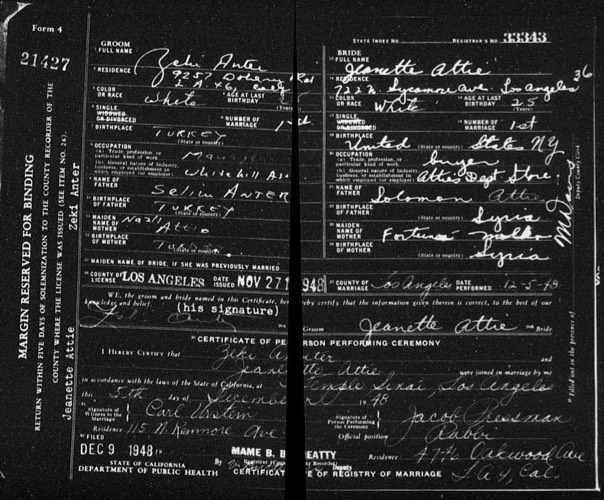 Form 4
21427
MARGIN RESERVED FOR BINDING
RETURN WITHIN FIVE DAYS OF SOLEMNIZATION TO THE COUNTY RECORDER OF THE
COUNTY WHERE THE LICENSE WAS ISSUED (SEE ITEM NO. 26).
Zeki Anter
Jeanette Attie
GROOM
FULL NAME Zeki Anter
RESIDENCE 9257 Doheny Rd
L A 46,
COLOR OR RACE White AGE AT LAST BIRTHDAY (Years)
SINGLE, WIDOWED OR DIVORCED NUMBER OF MARRIAGE 1st
BIRTHPLACE TURKEY
(State or country)
OCCUPATION
(a) Trade, profession or particular kind of work
(b) General nature of industry, business, or establishment in which employed or employer
NAME OF FATHER Selim ANTER
BIRTHPLACE OF FATHER TURKEY
(State or country)
MAIDEN NAME OF MOTHER Nazli Attie
BIRTHPLACE OF MOTHER
MAIDEN NAME OF BRIDE, IF SHE WAS PREVIOUSLY MARRIED
COUNTY OF LICENSE LOS ANGELES DATE ISSUED NOV 27 1948
STATE INDEX No. REGISTRAR'S No. 33343
BRIDE
FULL NAME Jeanette Attie
36
RESIDENCE 722 N. Sycamore Ave Los Angeles
COLOR OR RACE White AGE AT LAST BIRTHDAY 25 (Years)
SINGLE, WIDOWED OR DIVORCED NUMBER OF MARRIAGE 1st
BIRTHPLACE United States NY
(State or country)
OCCUPATION
(a) Trade, profession or particular kind of work Buyer
(b) General nature of industry, business, or establishment in which employed or employer Atties Dept Store
NAME OF FATHER Solomon Attie
BIRTHPLACE OF FATHER Syria
(State or country)
MAIDEN NAME OF MOTHER Fortune
BIRTHPLACE OF MOTHER Syria
(State or country)
Deputy County Clerk
COUNTY OF MARRIAGE Los Angeles DATE PERFORMED 12-5-48
WE, the groom and bride named in this Certificate, hereby certify that the information given therein is correct, to the best of our
knowledge and belief. (his signature)
Groom Jeanette Attie Bride
CERTIFICATE OF PERSON PERFORMING CEREMONY
I HEREBY CERTIFY that Zeki Anter and
Jeanette Attie were joined in marriage by me
in accordance with the laws of the State of California, at Temple Sinai Los Angeles
this 5th day of December 1948
Signature of Witness to the Marriage Carl
Residence 115 N. Kenmore Ave
Signature of Person Performing the Ceremony Jacob Pressman
Official position Rabbi
Residence 4746 Oakwood Ave
L A 4, Cal.
FILED
DEC 9 1948
MAME B. BEATTY
Registrar (County Recorder)
Deputy
STATE OF CALIFORNIA
DEPARTMENT OF PUBLIC HEALTH
CERTIFICATE OF REGISTRY OF MARRIAGE
Filled out in the presence of